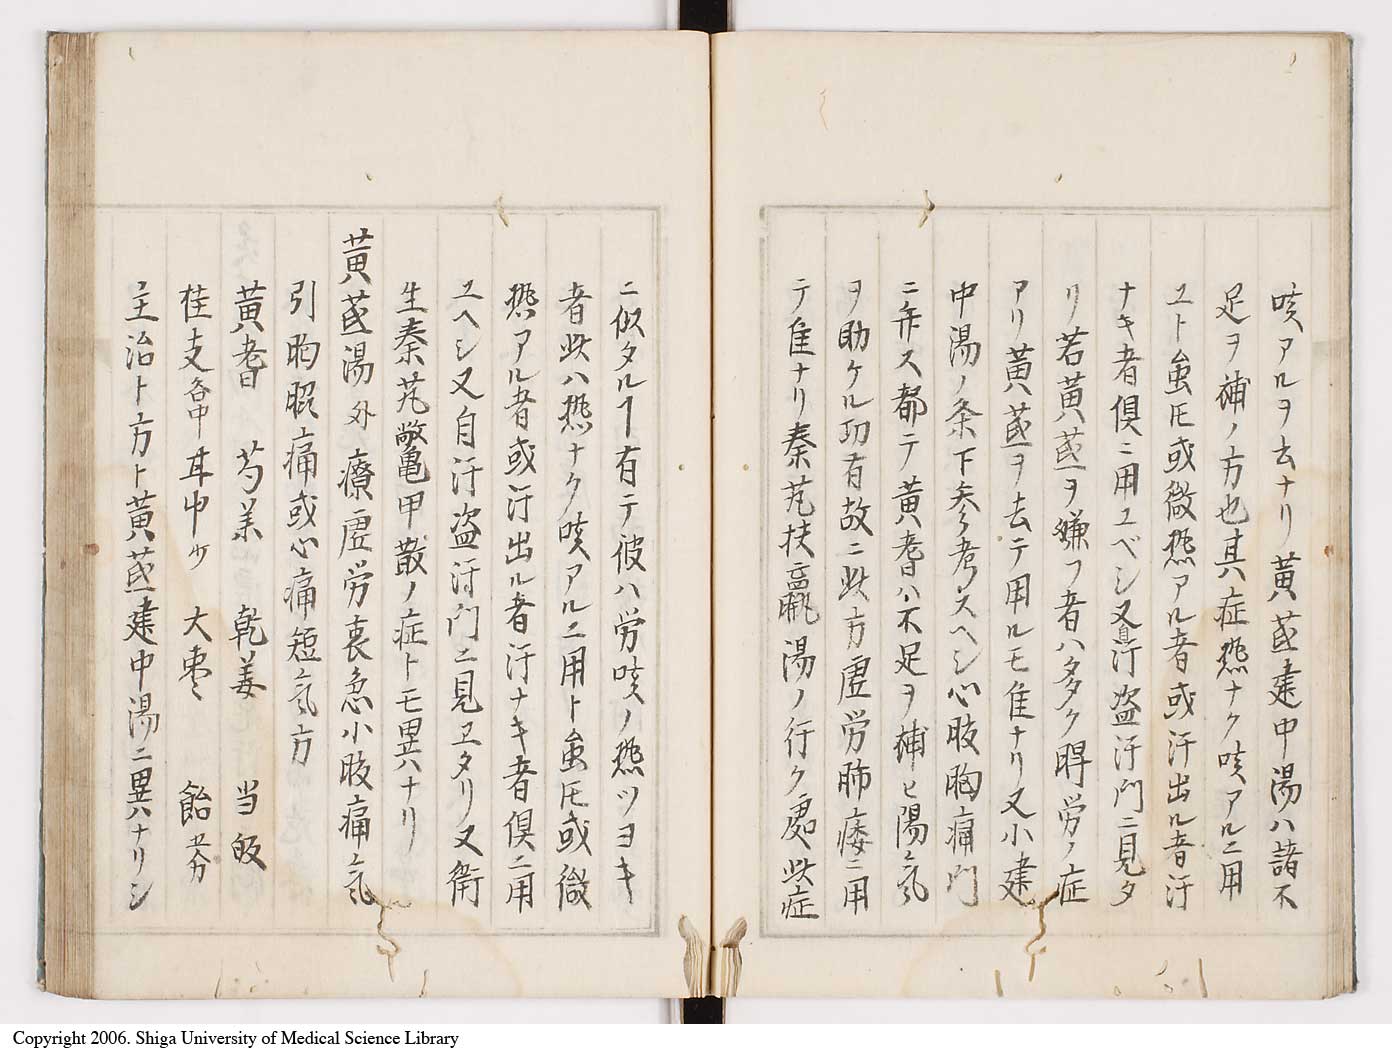 咳アルヲ去ナリ黄茋建中湯ハ諸不
足ヲ補ノ方也其症𤍠ナク咳アルニ用
ユト虽𪜈或微𤍠アル者或汗出ル者汗
ナキ者倶ニ用ユベシ又自汗盗汗門ニ見タ
リ若黄茋ヲ嫌フ者ハタタク労ノ症
アリ黄茋ヲ去テ用ルモ隹ナリ又小建
中湯ノ条下参考スヘシ心肢胸痛門
ニ弁ス都テ黄耆ハ不足ヲ補ヒ陽気
ヲ助ケル功有故ニ此方虚労肺痿ニ用
テ隹ナリ秦艽扶羸湯ノ行ク処此症
ニ似タルヿ有テ彼ハ労咳ノ𤍠ツヨキ
者此ハ𤍠ナク咳アルニ用ト虽𪜈或微
𤍠アル者或汗出ル者汗ナキ者倶ニ用
ユヘシ又自汗盗汗門ニ見ヱタリ又衛
生秦艽鱉亀甲散ノ症トモ異ハナリ
黄茋湯 外 療虚労裏急小肢痛気
引胸脇痛或心痛短気方
黄耆 芍薬 乾姜 当皈
桂支各中 甘中ケ 大枣 飴
主治ト方ト黄茋建中湯ニ異ハナリシ